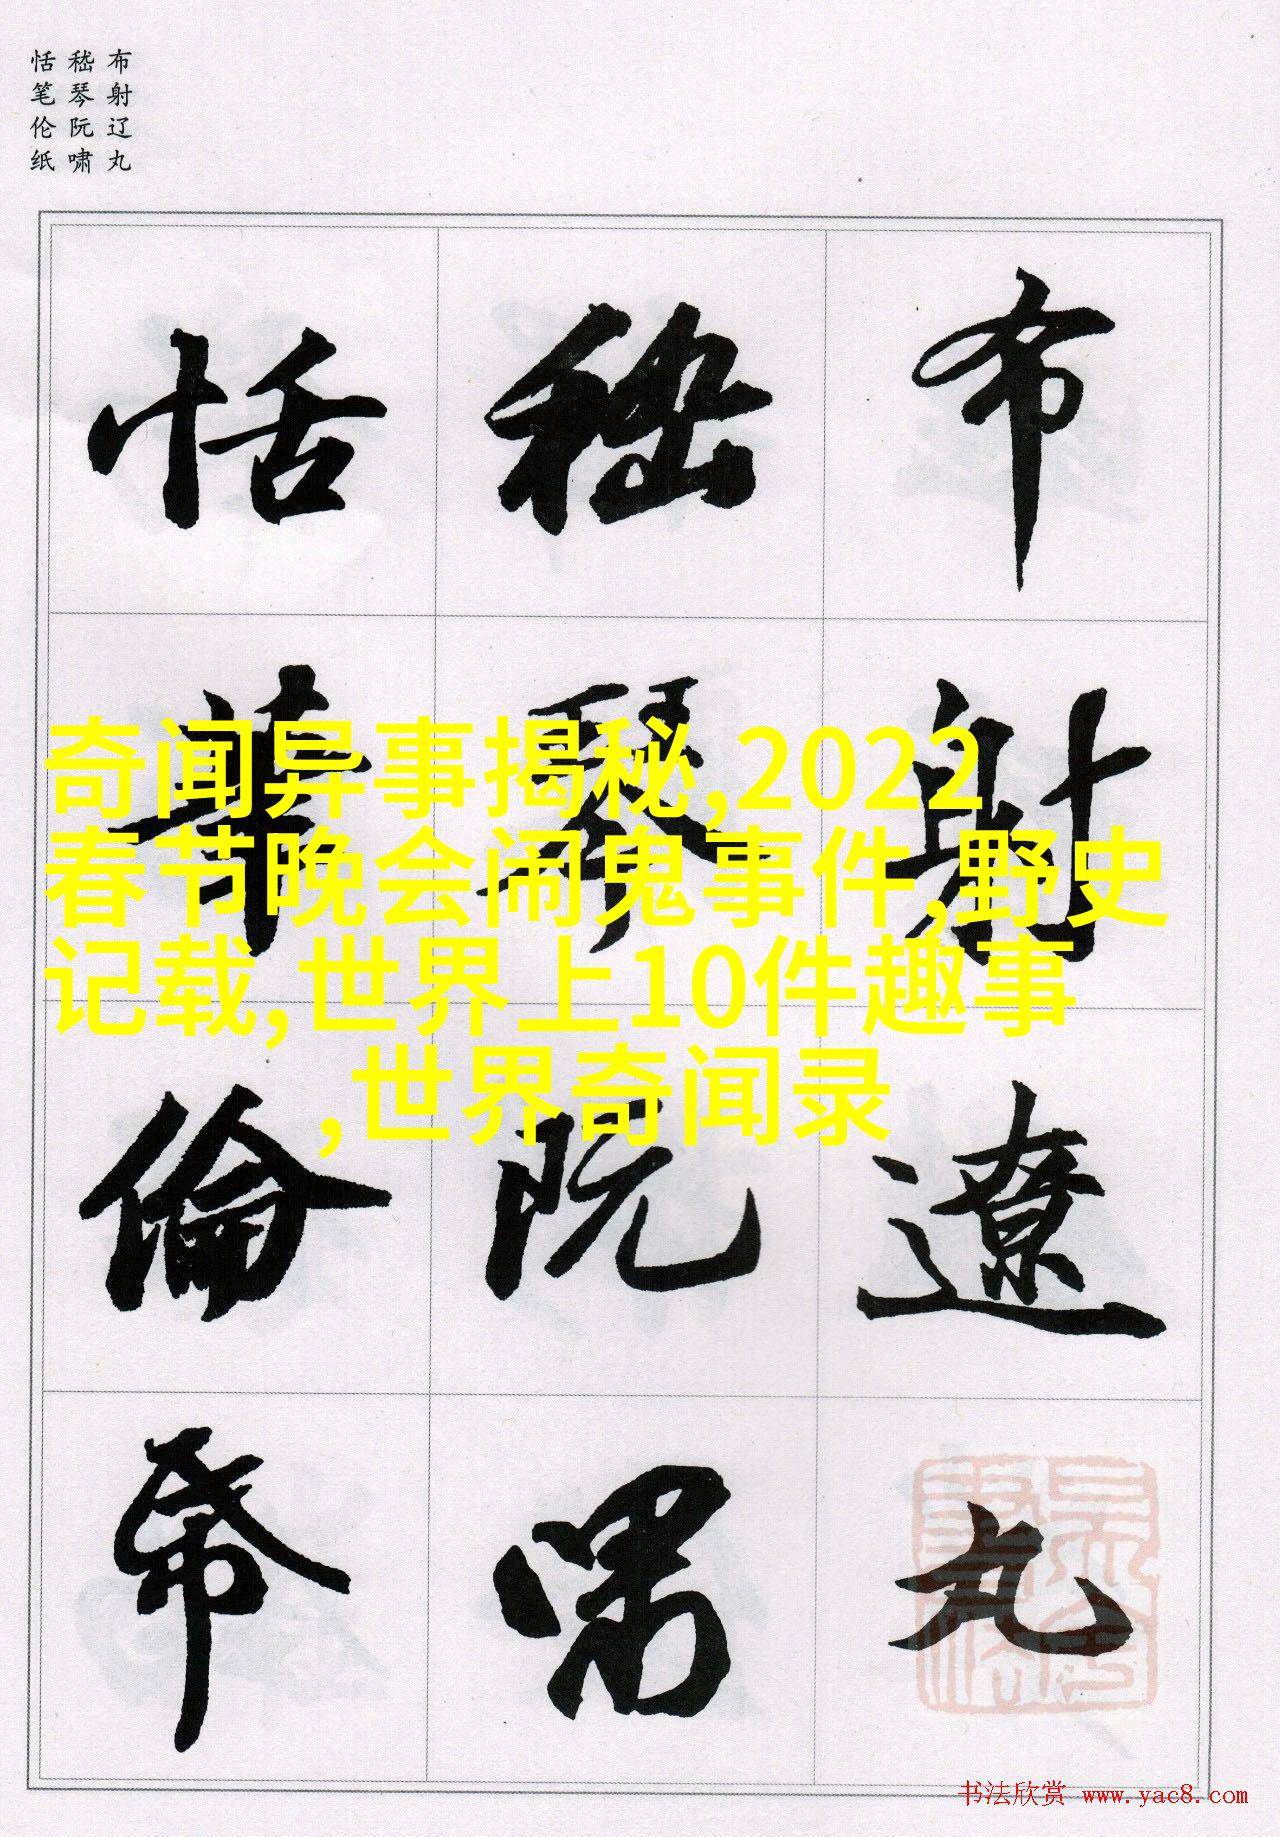 布射辽丸
嵇琴阮啸
恬笔伦纸
布射遼丸
嵇琴阮嘯
恬筆倫帋
奇闻异事揭秘,2022
春节晚会闹鬼事件,野史
记载,世界上10件趣事
,世界奇闻录
书法欣赏 www.yac8.com